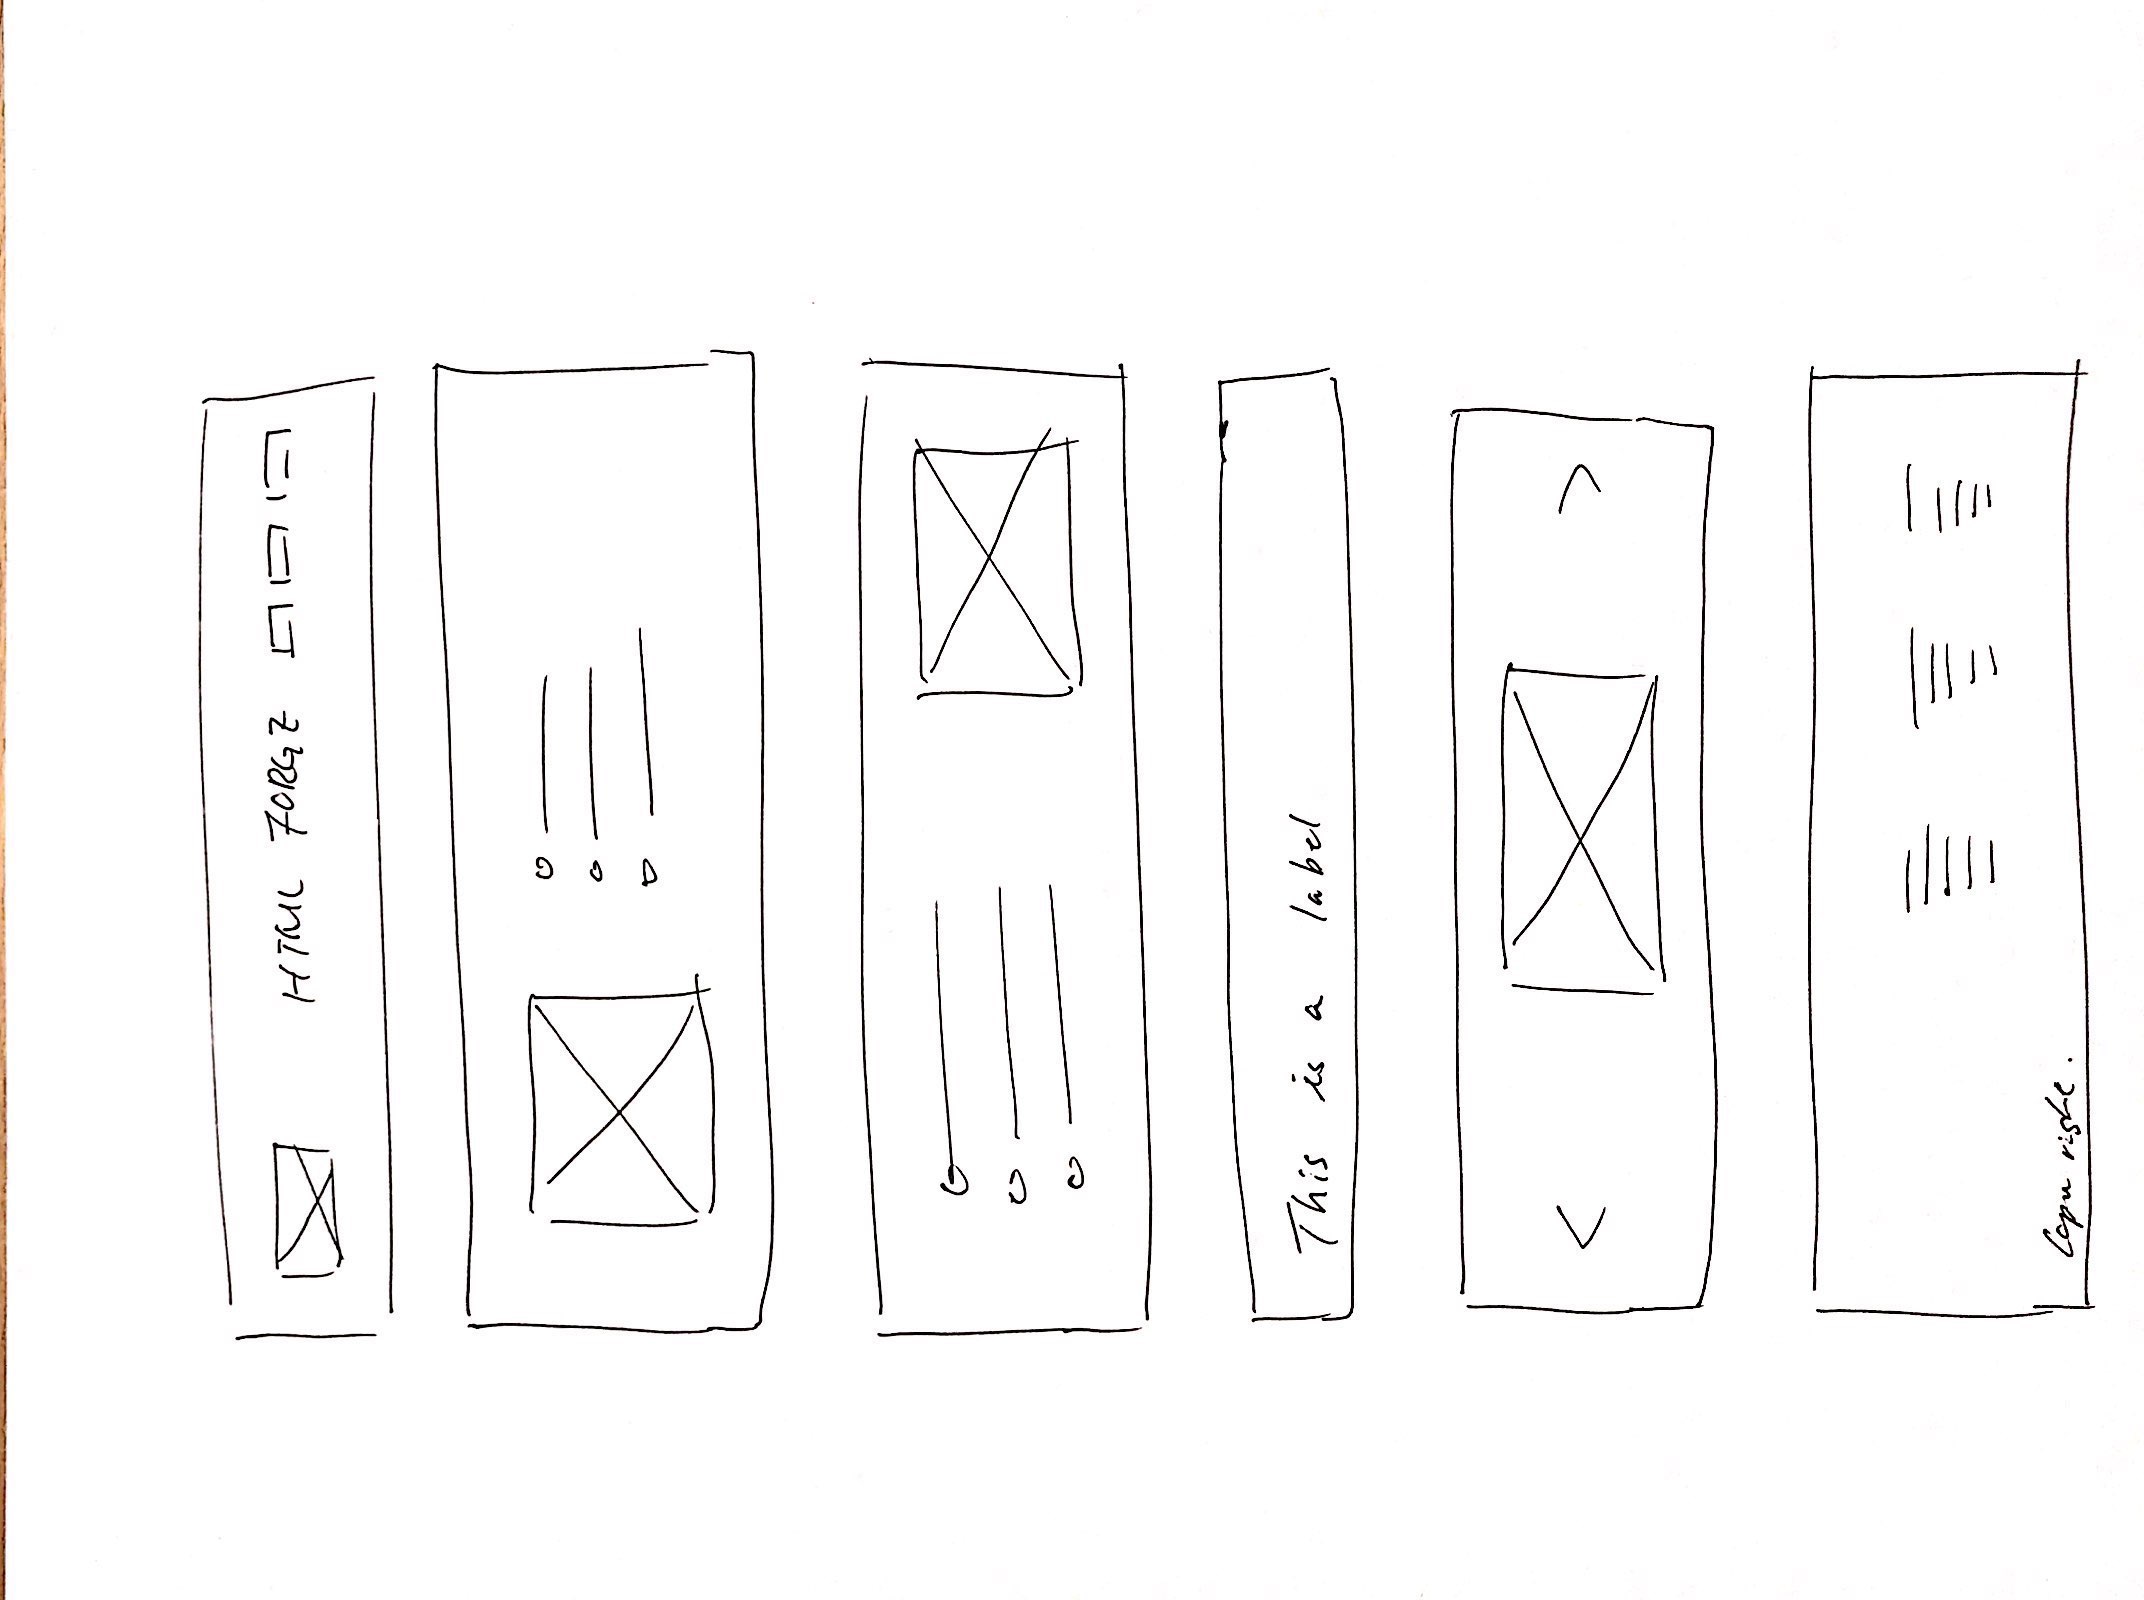 HTML FORGE
This is a label
Copy right.